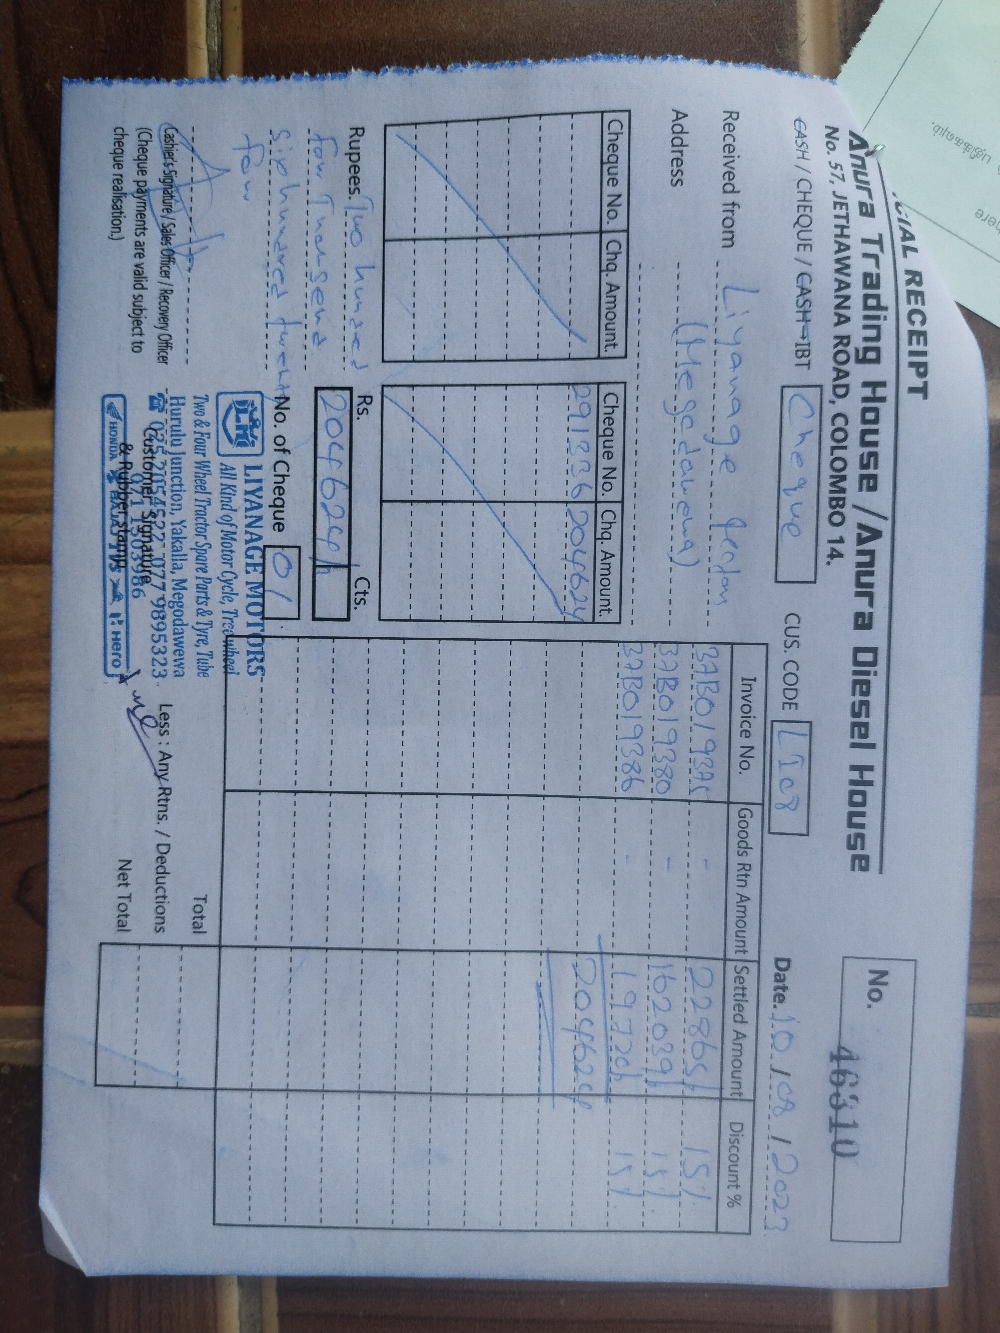 CIAL RECEIPT
Anura Trading House / Anura Diesel House
No. 57, JETHAWANA ROAD, COLOMBO 14.
No. 46310
CASH / CHEQUE / CASH→IBT Cheque CUS. CODE LI08 Date. 10 / 08 / 2023
Received from Liyanage
Address
Invoice No. Goods Rtn Amount Settled Amount Discount %
37B019375 - 22865/- 15%
37B019380 - 162039/- 15%
37B019386 - 19720/- 15%
204624/-
Cheque No. Chq. Amount. Cheque No. Chq. Amount.
291336 204624/-
Rupees Two hundred
four Thousand
six hundred twenty
four
Rs. Cts.
204624/-
No. of Cheque 01
LIYANAGE MOTORS
All Kind of Motor Cycle, Treewheel
Two & Four Wheel Tractor Spare Parts & Tyre, Tube
Hurulu Junction, Yakalla, Megodawewa
☎ 025 2054522 077 9895323
071 1503986
HONDA BAJAJ TVS Hero
Cashier Signature / Sales Officer / Recovery Officer
(Cheque payments are valid subject to
cheque realisation.)
Customer Signature
& Rubber stamp
Total
Less : Any Rtns. / Deductions
Net Total